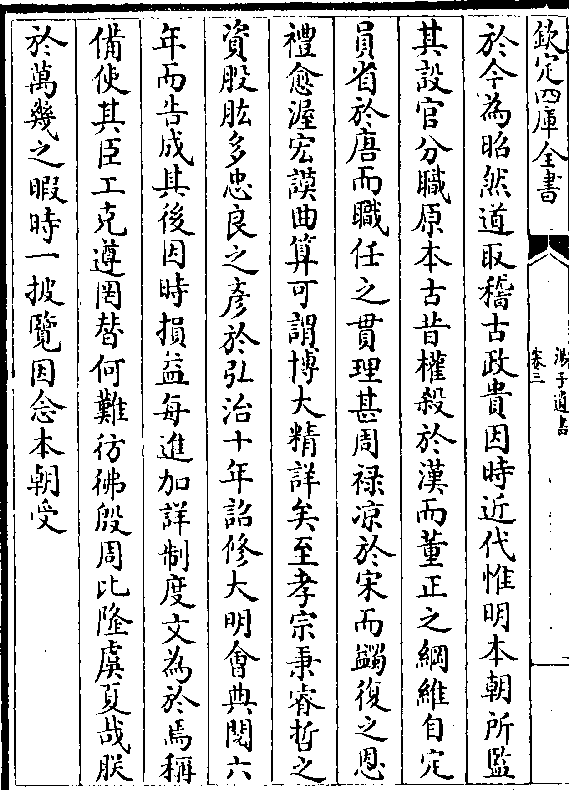 欽定四庫全書
湯子遺書
卷三
於今為昭然道取稽古政貴因時近代惟明本朝所監
其設官分職原本古昔權殺於漢而董正之綱維自定
員省於唐而職任之貫理甚周祿凉於宋而蠲復之恩
禮愈渥宏謨曲算可謂博大精詳矣至孝宗秉睿哲之
資股肱多忠良之彥於弘治十年詔修大明會典閱六
年而告成其後因時損益每進加詳制度文為於焉稱
備使其臣工克遵罔替何難彷彿殷周比隆虞夏哉朕
於萬幾之暇時一披覽因念本朝受